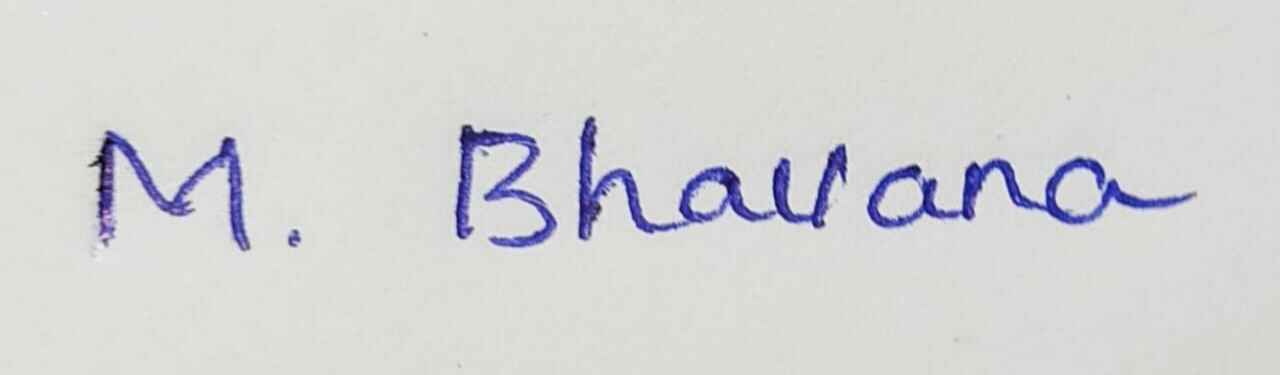 M. Bhavana